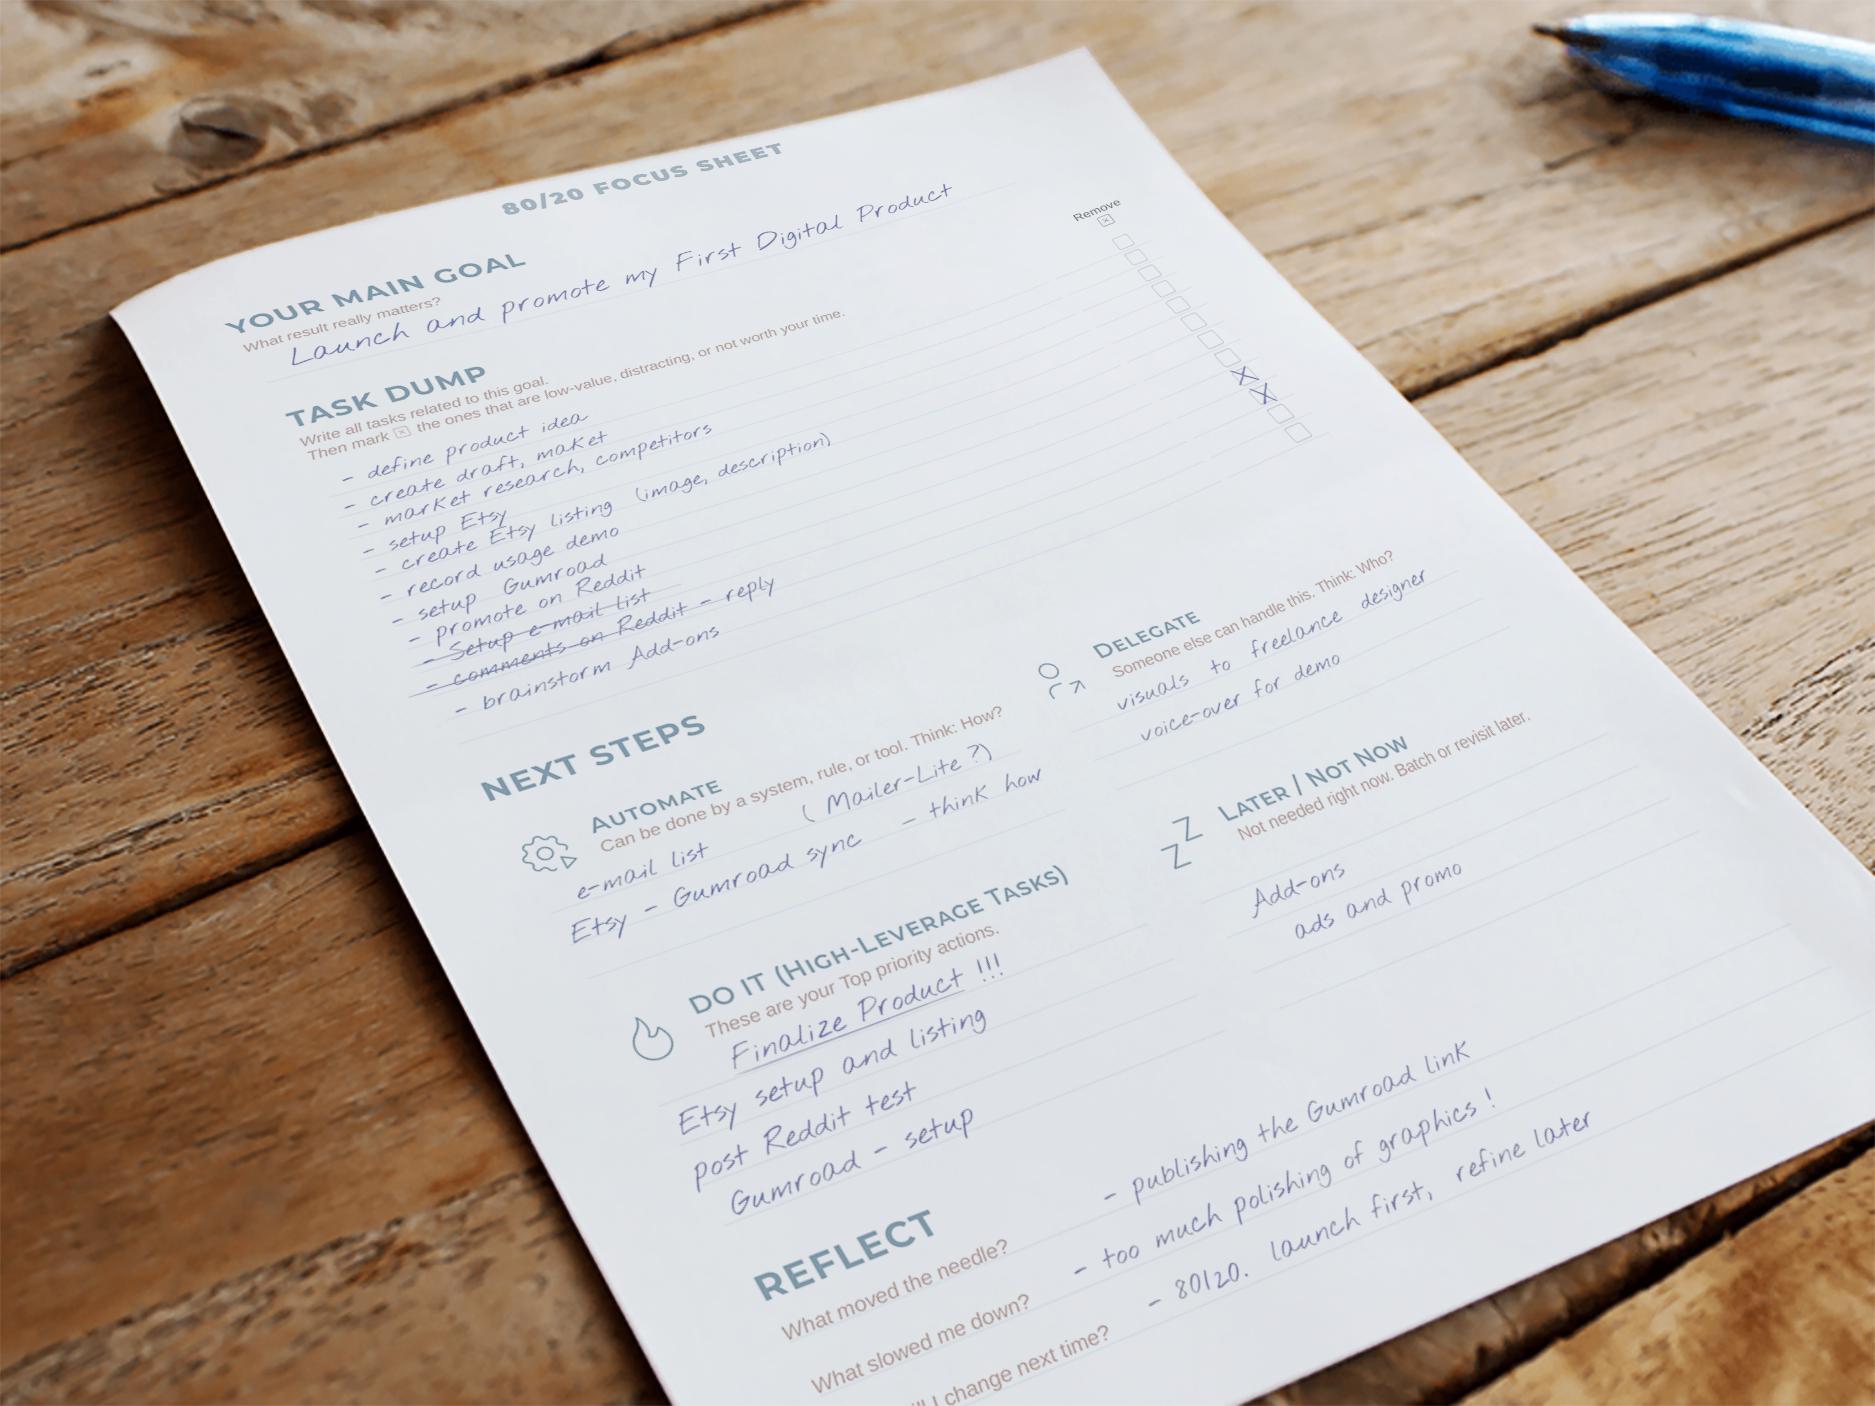 80/20 FOCUS SHEET
YOUR MAIN GOAL
What result really matters?
Launch and promote my First Digital Product
Remove
TASK DUMP
Write all tasks related to this goal.
Then mark ☒ the ones that are low-value, distracting, or not worth your time.
- define product idea
- create draft, maket
- market research, competitors
- setup Etsy
- create Etsy listing (image, description)
- record usage demo
- setup Gumroad
- promote on Reddit
- Setup e-mail list
- comments on Reddit - reply
- brainstorm Add-ons
NEXT STEPS
AUTOMATE
Can be done by a system, rule, or tool. Think: How?
(Mailer-Lite?)
e-mail list
Etsy - Gumroad sync - think how
DELEGATE
Someone else can handle this. Think: Who?
visuals to freelance designer
voice-over for demo
DO IT (HIGH-LEVERAGE TASKS)
These are your Top priority actions.
Finalize Product !!!
Etsy setup and listing
post Reddit test
Gumroad - setup
LATER / NOT NOW
Not needed right now. Batch or revisit later.
Add-ons
ads and promo
REFLECT
What moved the needle? - publishing the Gumroad link
What slowed me down? - too much polishing of graphics!
I change next time? - 80/20. launch first, refine later